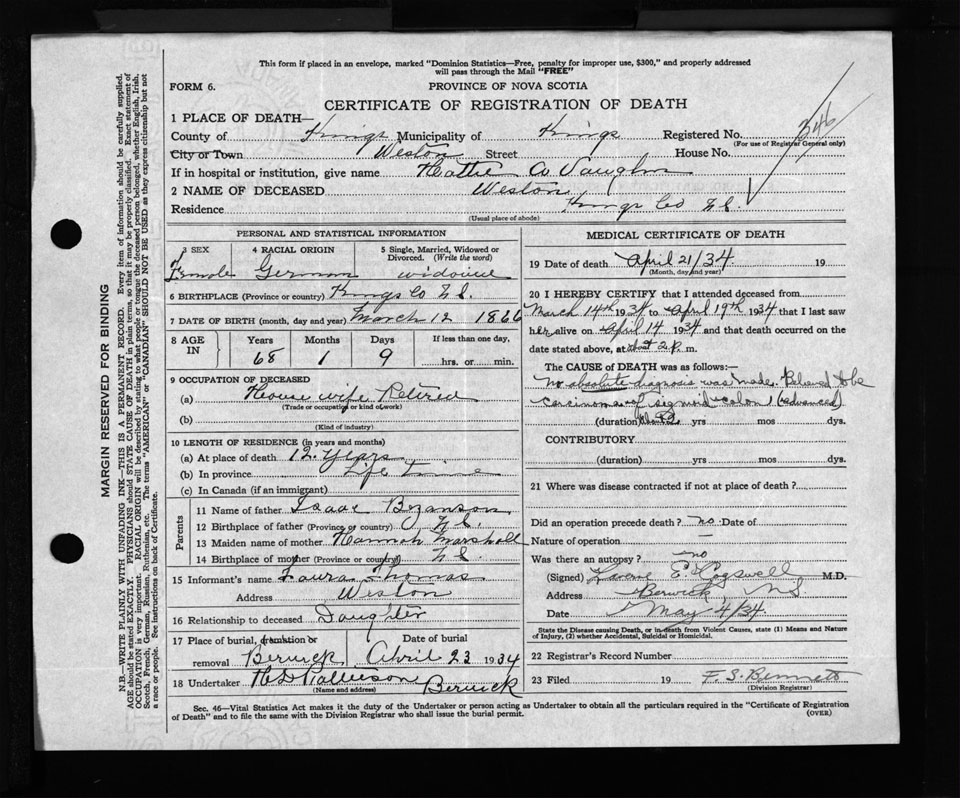 This form if placed in an envelope, marked "Dominion Statistics—Free, penalty for improper use, $300," and properly addressed
will pass through the Mail "FREE"
FORM 6.
PROVINCE OF NOVA SCOTIA
CERTIFICATE OF REGISTRATION OF DEATH
1 PLACE OF DEATH—
County of Kings Municipality of Kings Registered No. 346
(For use of Registrar General only)
City or Town Weston Street House No.
If in hospital or institution, give name Hattie A Vaughn
2 NAME OF DECEASED Weston
Residence Kings Co N.S.
(Usual place of abode)
PERSONAL AND STATISTICAL INFORMATION
3 SEX 4 RACIAL ORIGIN 5 Single, Married, Widowed or
Divorced. (Write the word)
Female German
6 BIRTHPLACE (Province or country) Kings Co N.S.
7 DATE OF BIRTH (month, day and year) March 12 1866
8 AGE IN Years Months Days If less than one day,
68 1 9 hrs. or min.
9 OCCUPATION OF DECEASED
(a) House wife Retired
(Trade or occupation or kind of work)
(b)
(Kind of industry)
10 LENGTH OF RESIDENCE (in years and months)
(a) At place of death 12 years
(b) In province Life time
(c) In Canada (if an immigrant)
Parents
11 Name of father Isaac Bezanson
12 Birthplace of father (Province or country) N.S.
13 Maiden name of mother Hannah Marshall
14 Birthplace of mother (Province or country) N.S.
15 Informant's name Laura Thomas
Address Weston
16 Relationship to deceased Daughter
17 Place of burial, cremation or Date of burial
removal Berwick April 23 1934
18 Undertaker Berwick
(Name and address)
MEDICAL CERTIFICATE OF DEATH
19 Date of death April 21/34 19
(Month, day and year)
20 I HEREBY CERTIFY that I attended deceased from
March 14th 1934 to April 19th 1934 that I last saw
her alive on April 14 1934 and that death occurred on
the date stated above, at about 2 P. m.
The CAUSE of DEATH was as follows:—
No absolute diagnosis was made. Believed to be
carcinoma of sigmoid colon (advanced)
(duration) yrs mos dys.
CONTRIBUTORY
(duration) yrs mos dys.
21 Where was disease contracted if not at place of death?
Did an operation precede death? no Date of
Nature of operation —
Was there an autopsy? no
(Signed) E. Cogswell M.D.
Address Berwick, N.S.
Date May 4/34
State the Disease Causing Death, or in death from Violent Causes, state (1) Means and Nature
of Injury, (2) whether Accidental, Suicidal or Homicidal.
22 Registrar's Record Number
23 Filed 19 F. S. Bennett
(Division Registrar)
Sec. 46—Vital Statistics Act makes it the duty of the Undertaker or person acting as Undertaker to obtain all the particulars required in the "Certificate of Registration
of Death" and to file the same with the Division Registrar who shall issue the burial permit. (OVER)
MARGIN RESERVED FOR BINDING
N.B.—WRITE PLAINLY WITH UNFADING INK—THIS IS A PERMANENT RECORD. Every item of information should be carefully supplied.
AGE should be stated EXACTLY. PHYSICIANS should STATE CAUSE OF DEATH in plain terms, so that it may be properly classified. Exact statement of
OCCUPATION is very important. RACIAL ORIGIN will be described by stating to what people or tongue the deceased person belonged, whether English, Irish,
Scotch, French, German, Russian, Ruthenian, etc. The terms "AMERICAN" or "CANADIAN" SHOULD NOT BE USED as they express citizenship but not
a race or people. See instructions on back of Certificate.